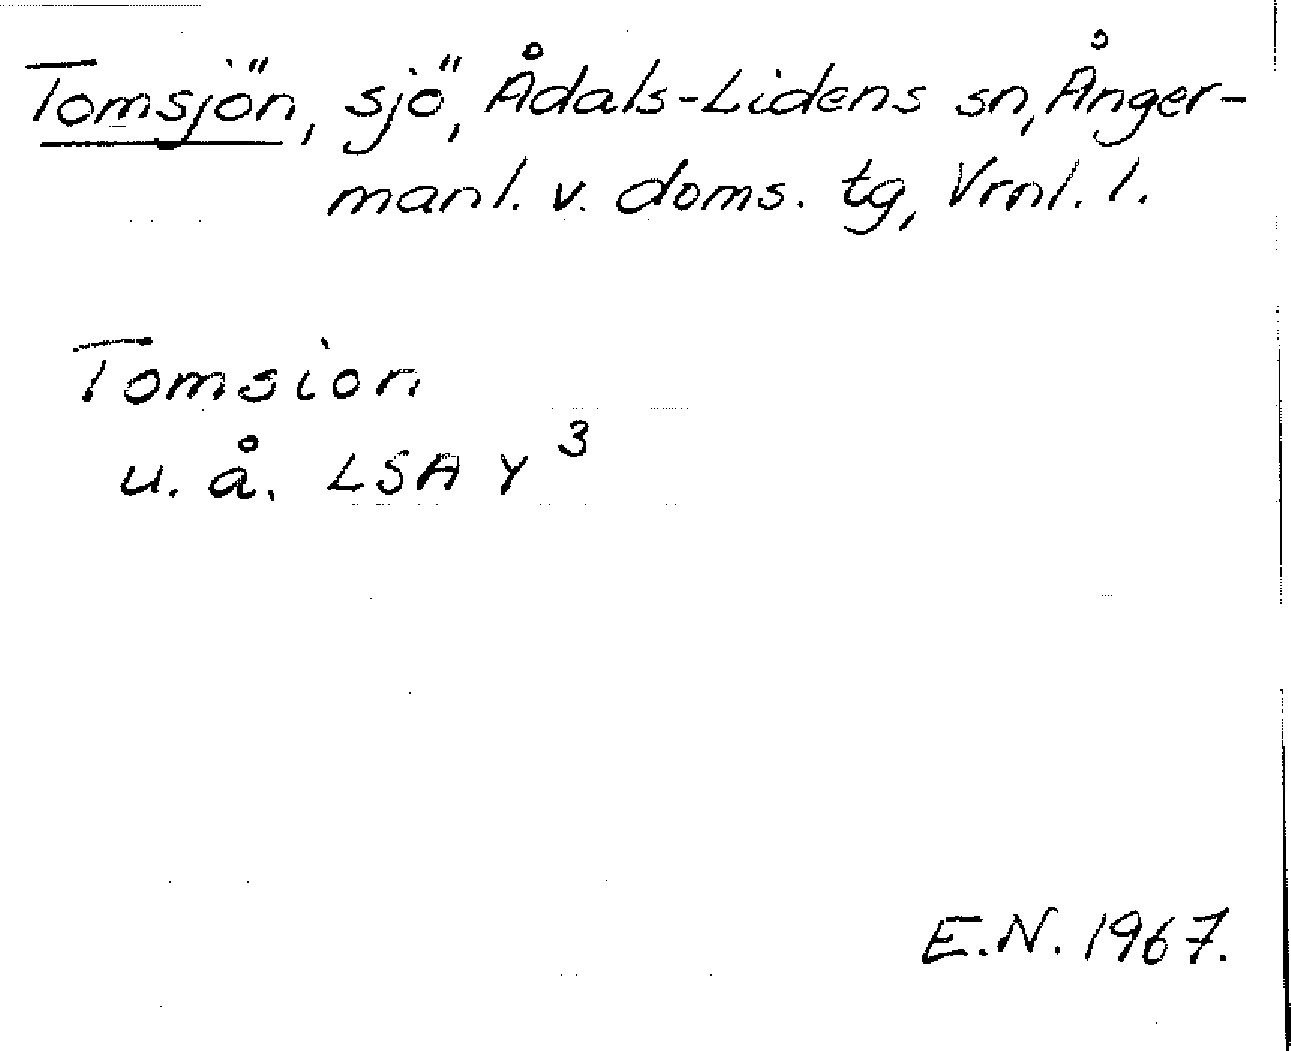 Tomsjön, sjö, Ådals-Lidens sn, Ånger-
manl. v. doms. tg, Vrnl. l.
Tomsion
u. å. LSA Y³
E.N. 1967.